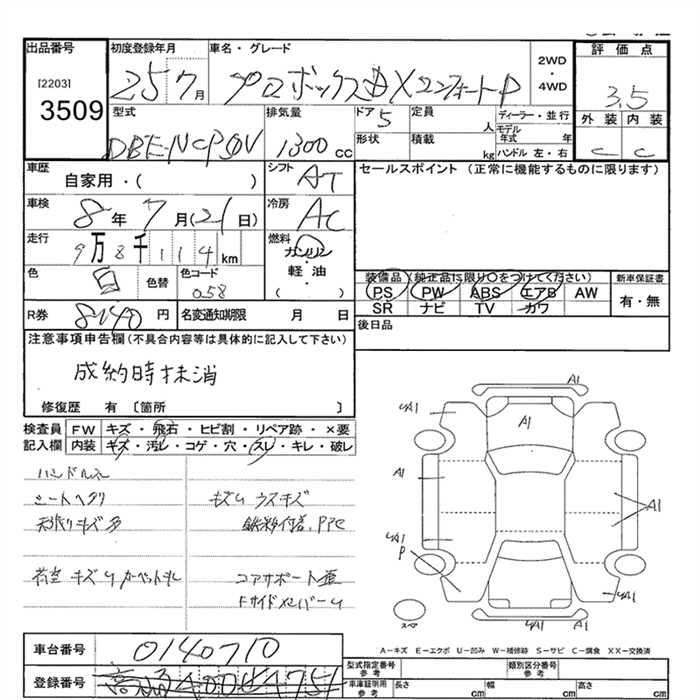 出品番号
[2203]
3509
初度登録年月
25 7月
車名・グレード
プロボックスDXコンフォートP
2WD
・
4WD
評価点
3.5
外装 内装
C C
型式
DBE-NCP50V
排気量
1300 cc
ドア 5
形状
定員 人
積載 kg
ディーラー・並行
モデル年式 年
ハンドル 左・右
車歴
自家用・( )
シフト
AT
セールスポイント (正常に機能するものに限ります)
車検
8年 7月(21日)
冷房
AC
走行
9万8千114km
燃料
ガソリン
・
軽油
( )
色
白
色替
色コード
058
R券
8140円
名変通知期限 月 日
装備品 (純正品に限り○をつけてください)
PS PW ABS エアB AW
SR ナビ TV カワ
新車保証書
有・無
後日品
注意事項申告欄(不具合内容等は具体的に記入して下さい)
成約時抹消
修復歴 有 〔箇所 〕
検査員記入欄
FW キズ・飛石・ヒビ割・リペア跡・×要
内装 キズ・汚レ・コゲ・穴・スレ・キレ・破レ
ハンドルスレ
シートヘタリ
天張りキズ多
荷室 キズ
キズ ウスキズ
コアサポート
A1
A1
4A1
A1
A1
4A1
P
4A1
4A1
A1
スペア
A-キズ E-エクボ U-凹み W-補修跡 S-サビ C-腐食 XX-交換済
車台番号
0140710
登録番号
型式指定番号 参考
類別区分番号 参考
車庫証明用 参考
長さ cm
幅 cm
高さ cm